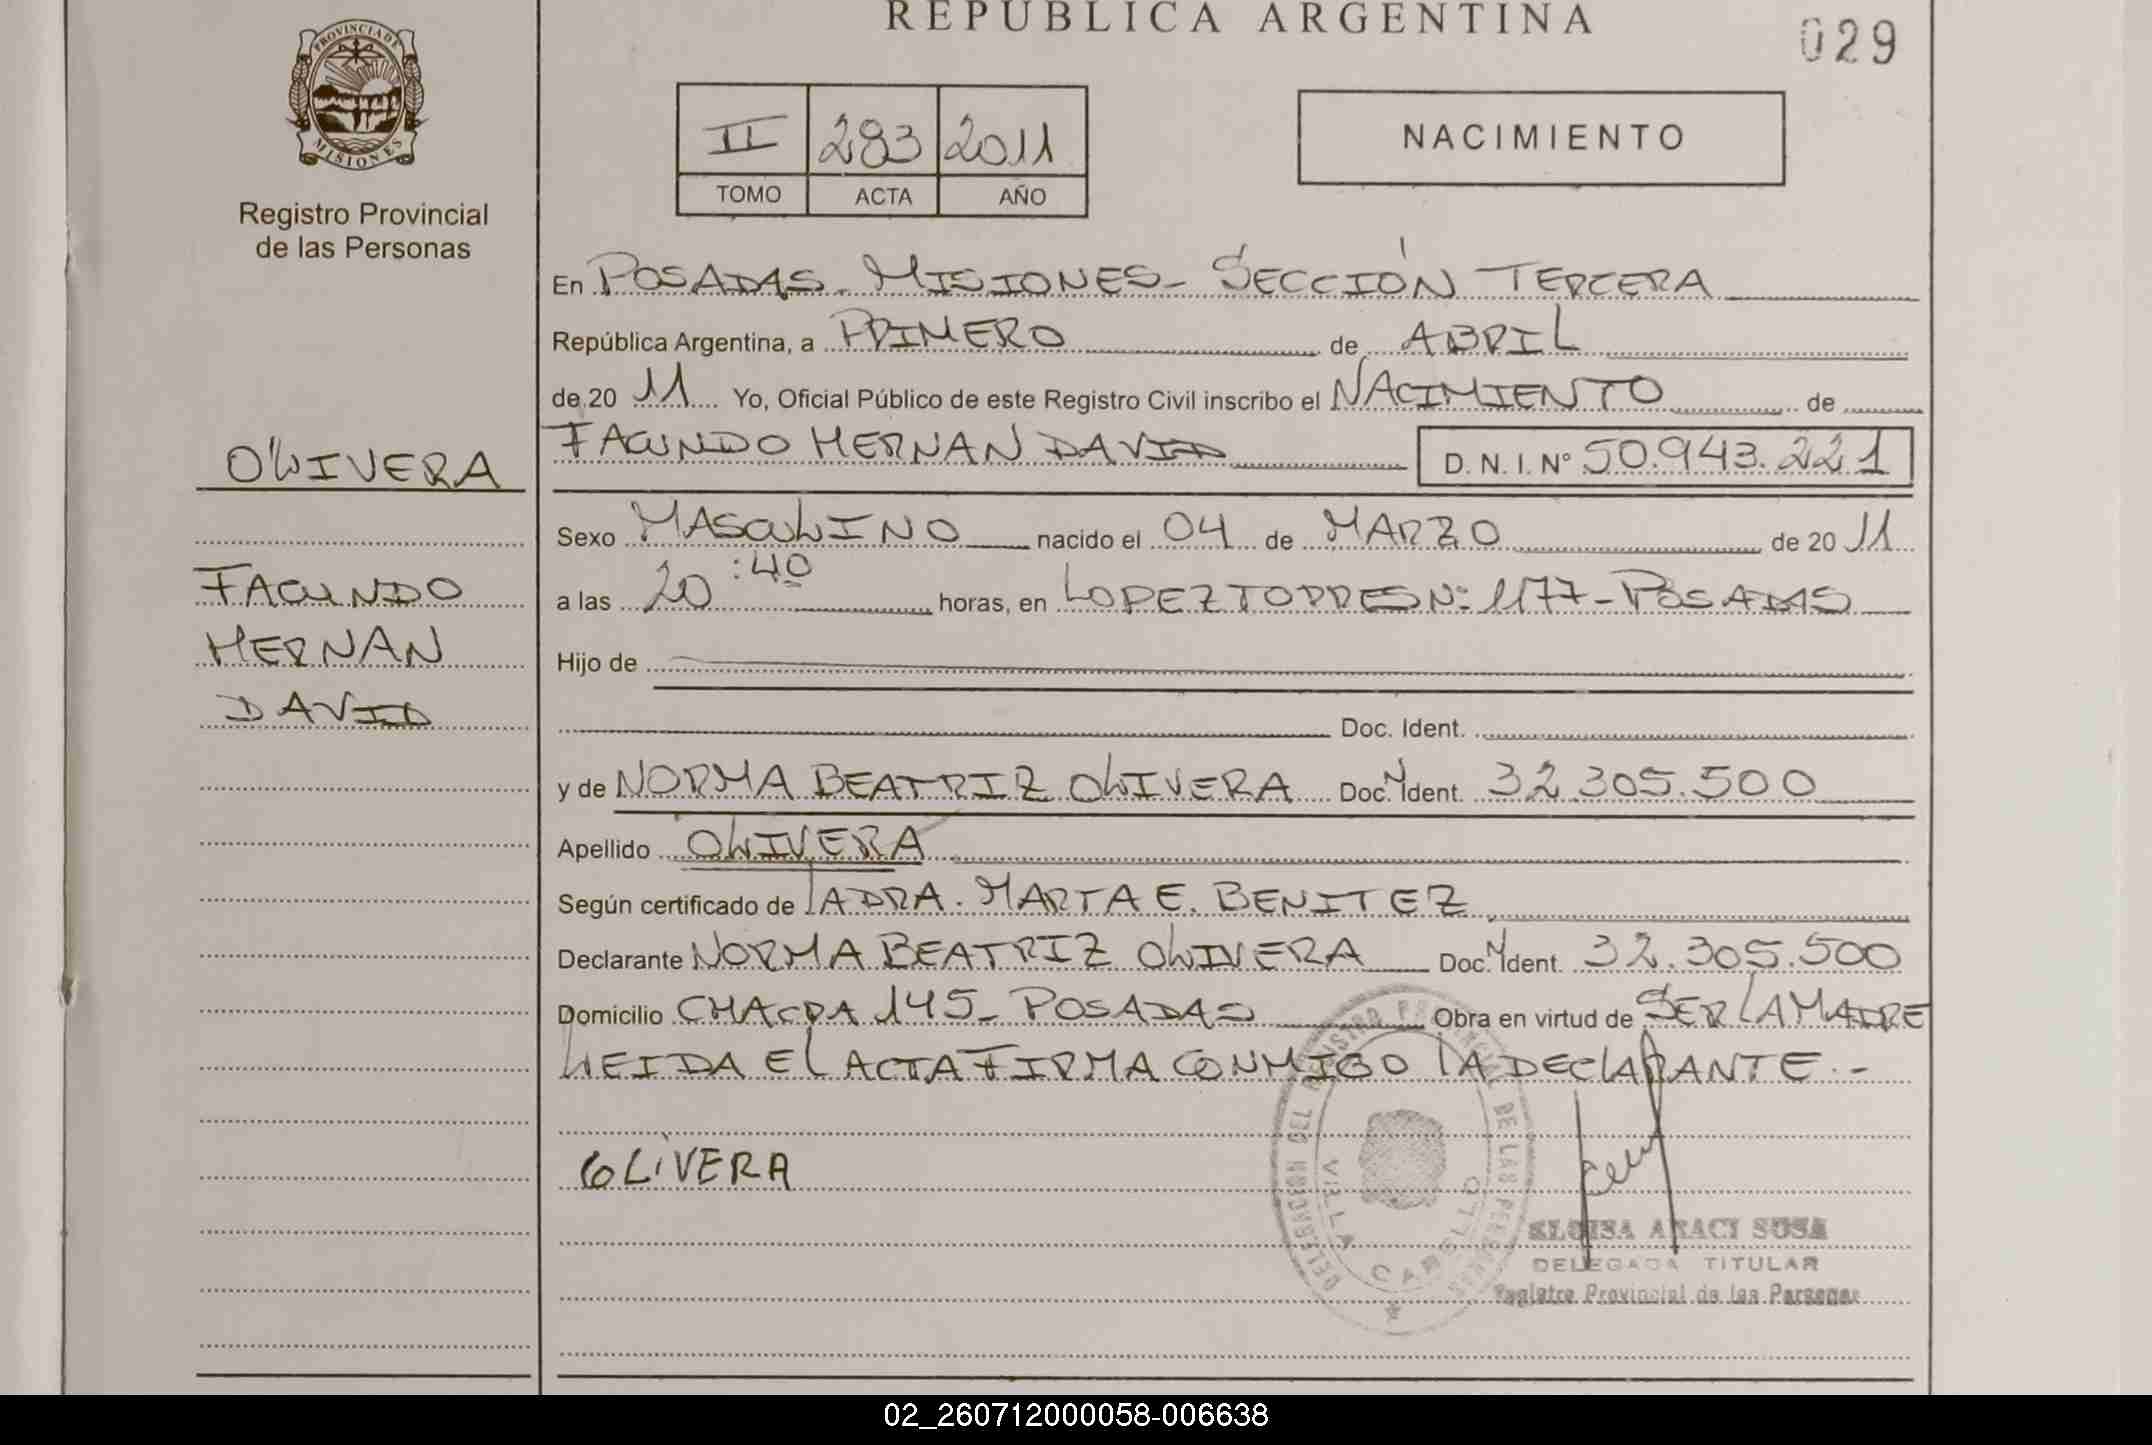 REPUBLICA ARGENTINA
029
PROVINCIA DE
MISIONES
Registro Provincial
de las Personas
II 283 2011
TOMO ACTA AÑO
NACIMIENTO
En POSADAS - MISIONES - SECCIÓN TERCERA
República Argentina, a PRIMERO de ABRIL
de 20 11 Yo, Oficial Público de este Registro Civil inscribo el NACIMIENTO de
FACUNDO HERNAN DAVID D. N. I. Nº 50.943.221
OLIVERA
FACUNDO
HERNAN
DAVID
Sexo MASCULINO nacido el 04 de MARZO de 20 11
a las 20:40 horas, en LOPEZ TORRES Nº 1177 - POSADAS
Hijo de
Doc. Ident.
y de NORMA BEATRIZ OLIVERA Doc. Ident. 32.305.500
Apellido OLIVERA
Según certificado de LA DRA. MARTA E. BENITEZ
Declarante NORMA BEATRIZ OLIVERA Doc. Ident. 32.305.500
Domicilio CHACRA 145 - POSADAS Obra en virtud de SER LA MADRE
LEIDA EL ACTA FIRMA CONMIGO LA DECLARANTE.-
OLIVERA
DELEGACION DEL REGISTRO PROVINCIAL DE LAS PERSONAS
VILLA CABELLO
ELOISA ARACI SUSA
DELEGADA TITULAR
Registro Provincial de las Personas
02_260712000058-006638